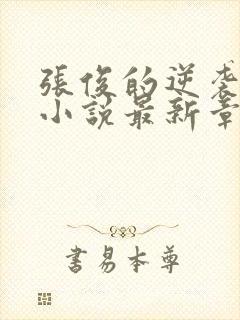 張俊的逆袭
小說最新章
書易本尊